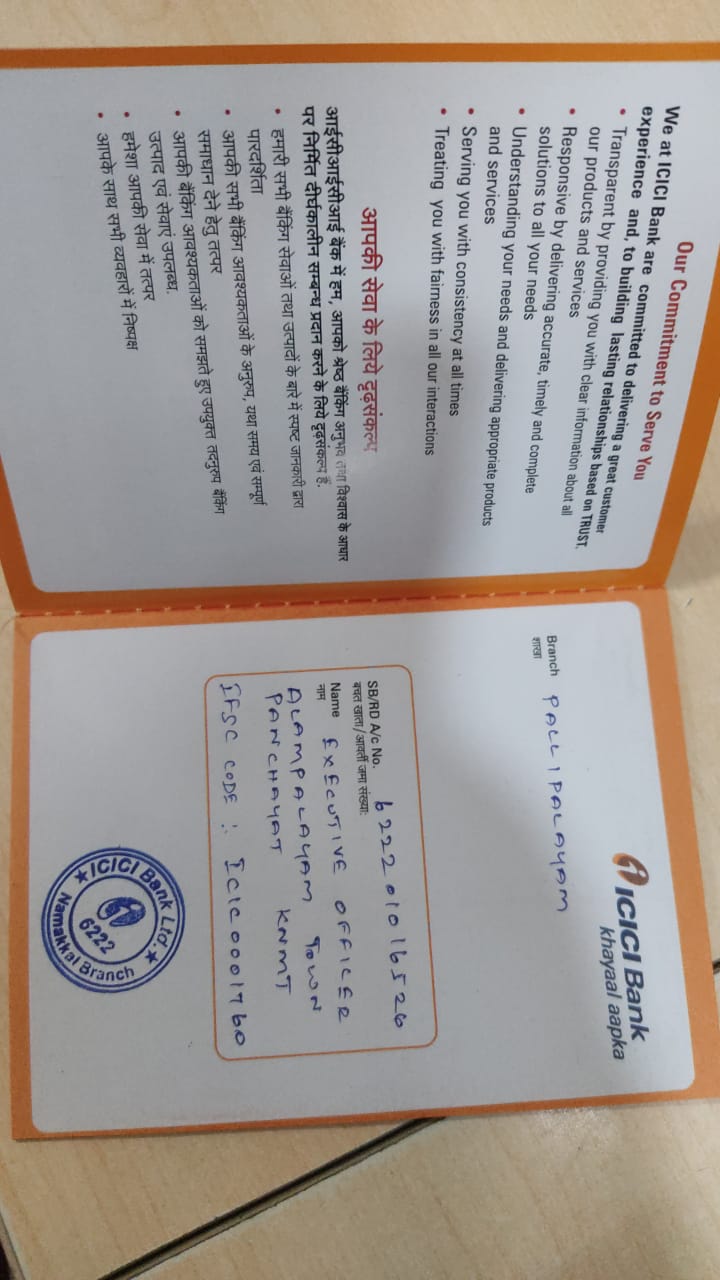 Our Commitment to Serve You
We at ICICI Bank are committed to delivering a great customer
experience and, to building lasting relationships based on TRUST.
• Transparent by providing you with clear information about all
our products and services
• Responsive by delivering accurate, timely and complete
solutions to all your needs
• Understanding your needs and delivering appropriate products
and services
• Serving you with consistency at all times
• Treating you with fairness in all our interactions
आपकी सेवा के लिये दृढ़संकल्प
आईसीआईसीआई बैंक में हम, आपको श्रेष्ठ बैंकिंग अनुभव तथा विश्वास के आधार
पर निर्मित दीर्घकालीन सम्बन्ध प्रदान करने के लिये दृढ़संकल्प हैं.
• हमारी सभी बैंकिंग सेवाओं तथा उत्पादों के बारे में स्पष्ट जानकारी द्वारा
पारदर्शिता
• आपकी सभी बैंकिंग आवश्यकताओं के अनुरुप, यथा समय एवं सम्पूर्ण
समाधान देने हेतु तत्पर
• आपकी बैंकिंग आवश्यकताओं को समझते हुए उपयुक्त तदनुरुप बैंकिंग
उत्पाद एवं सेवाएं उपलब्ध.
• हमेशा आपकी सेवा में तत्पर
• आपके साथ सभी व्यवहारों में निष्पक्ष
ICICI Bank
khayaal aapka
Branch PALLIPALAYAM
शाखा
SB/RD A/c No. 622201016526
बचत खाता/आवर्ती जमा संख्या:
Name EXECUTIVE OFFICER
नाम
ALAMPALAYAM TOWN
PANCHAYAT KNMT
IFSC CODE : ICIC0001760
ICICI Bank Ltd.
6222
Namakkal Branch